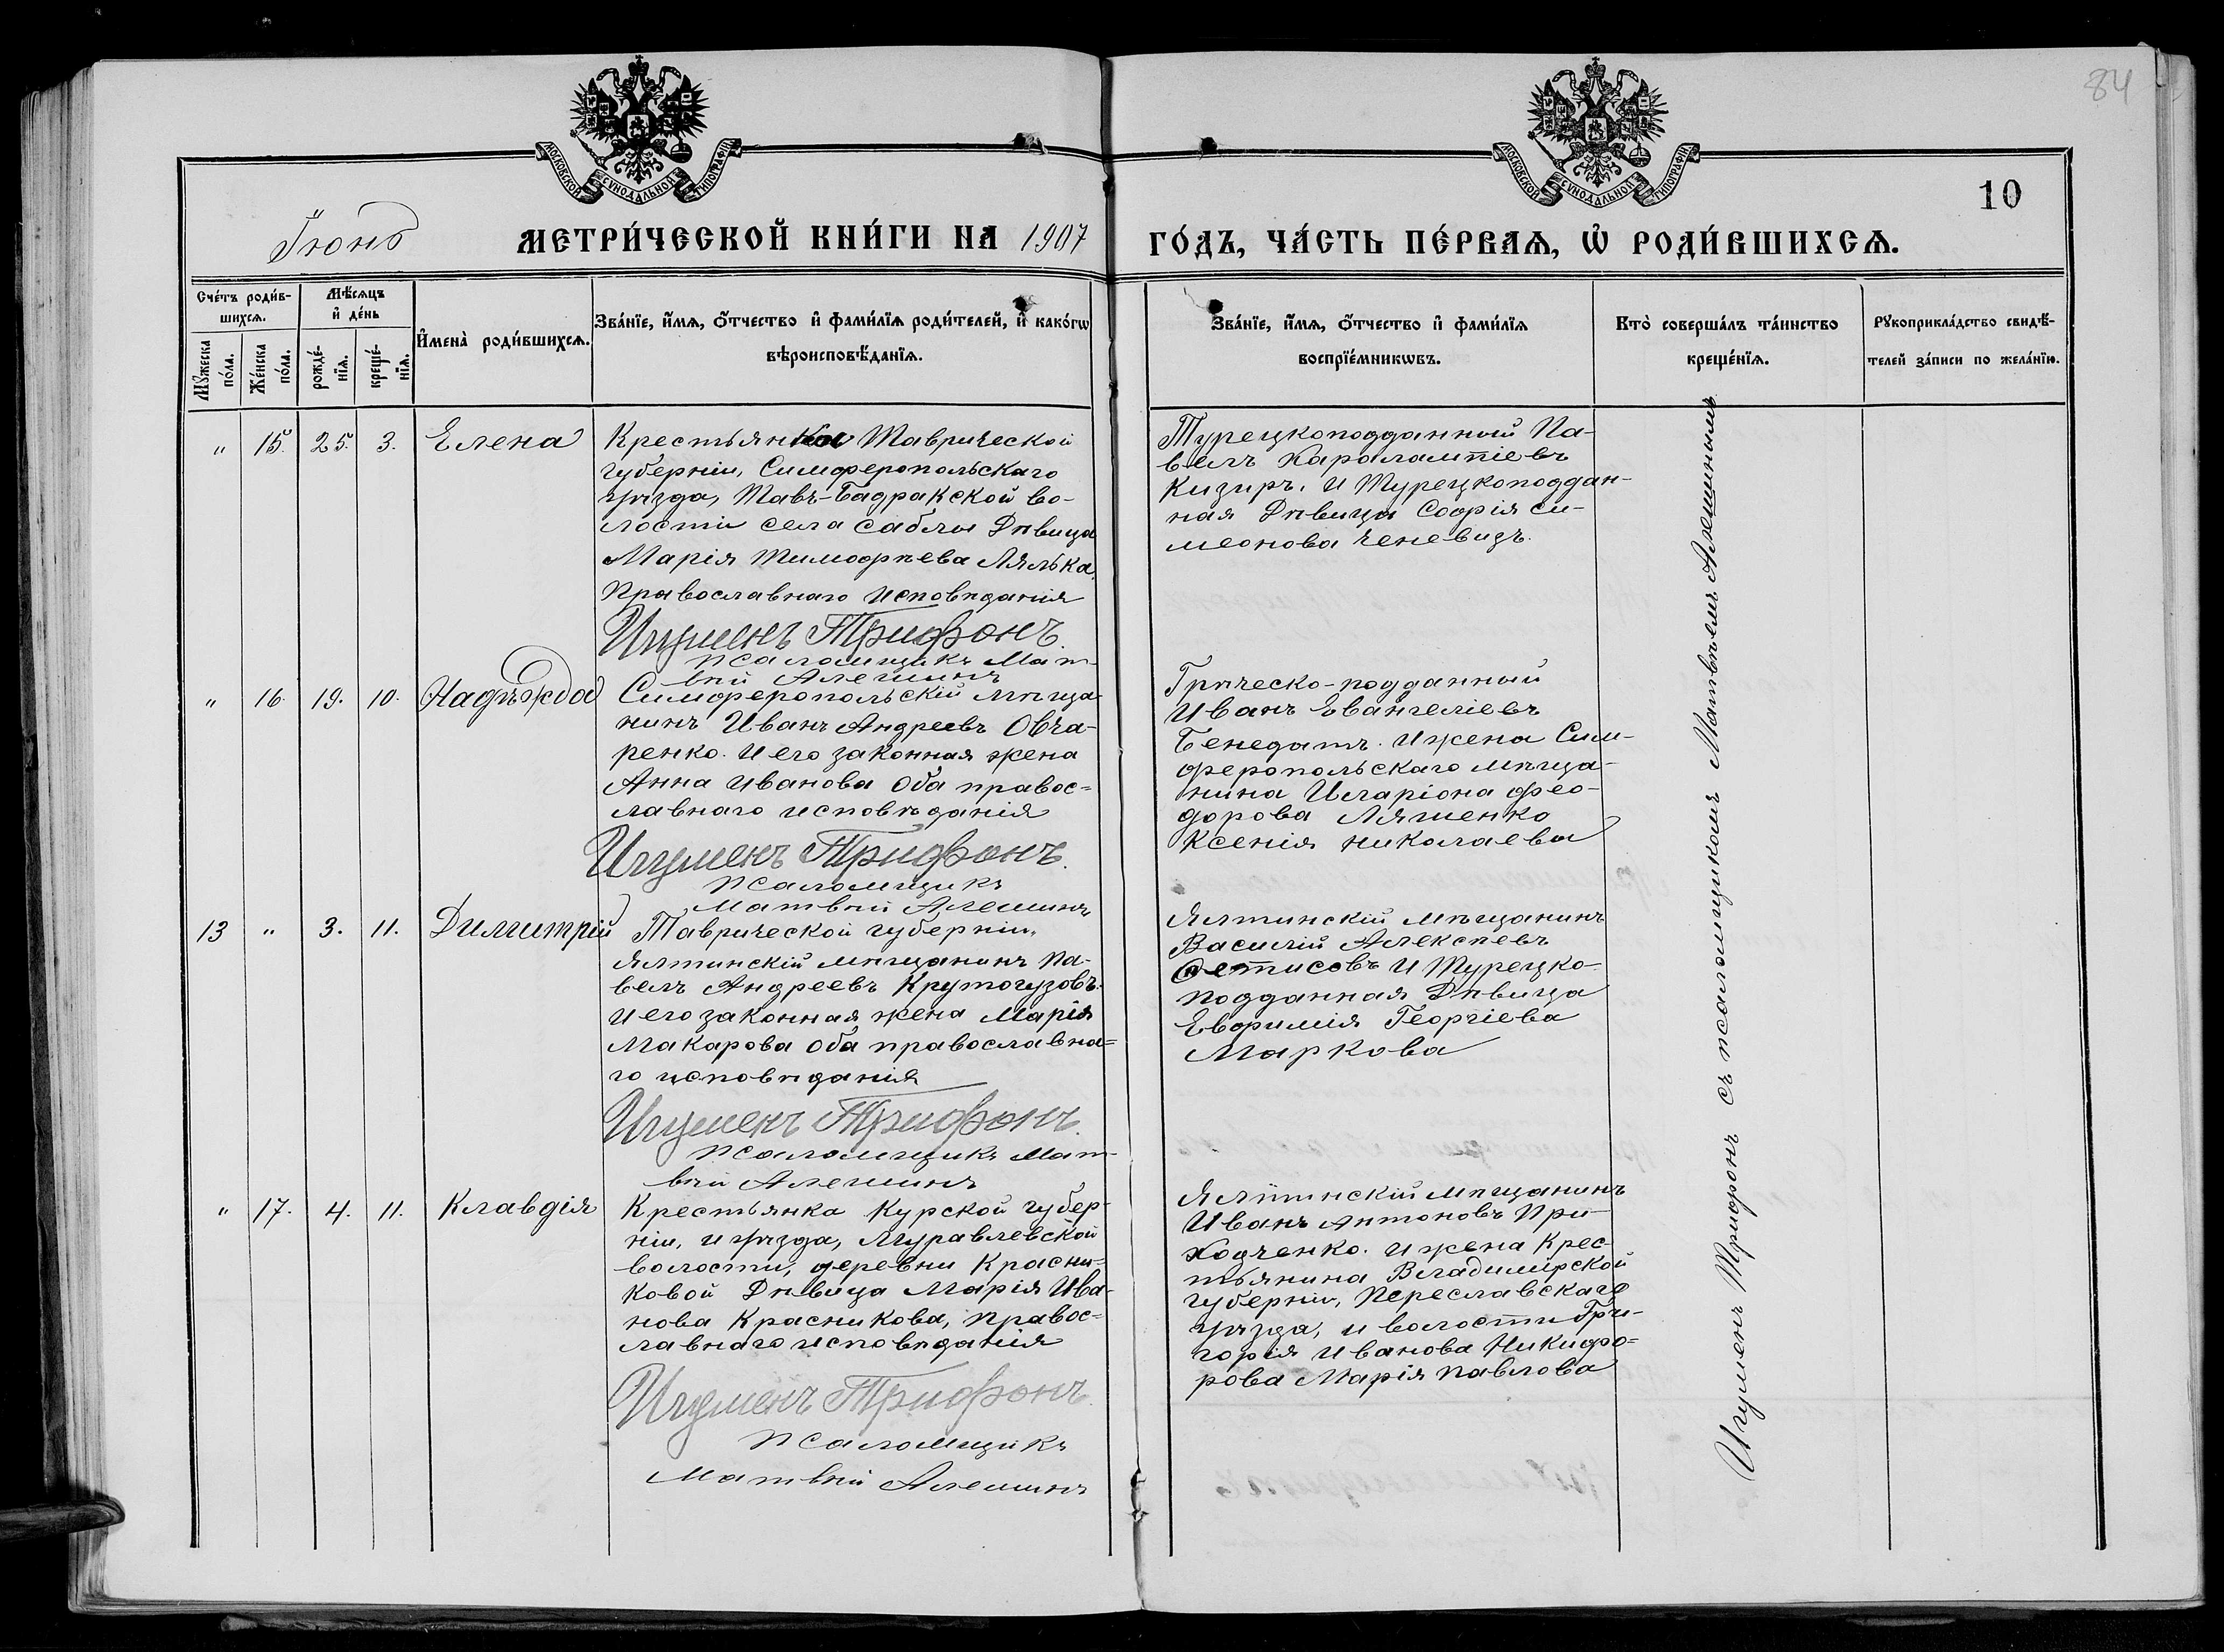 84
МОСКОВСКОЙ СѴНОДАЛЬНОЙ ТИПОГРАФІИ
МОСКОВСКОЙ СѴНОДАЛЬНОЙ ТИПОГРАФІИ
10
Іюнь
МЕТРИ́ЧЕСКОЙ КНИ́ГИ НА 1907 ГО́ДЪ, ЧА́СТЬ ПЕ́РВАѦ, Ѡ҆ РОДИ́ВШИХСѦ.
Сче́тъ роди́в-
шихсѧ.
Мꙋжеска
по́ла.
Же́нска
по́ла.
Мѣ́сѧцъ
и҆ де́нь
рожде́-
нїѧ.
креще́-
нїѧ.
И҆мена̀ роди́вшихсѧ.
Зва́нїе, и҆́мѧ, ѻ҆́тчество и҆ фами́лїѧ роди́телей, и҆ како́гѡ
вѣроисповѣ́данїѧ.
Зва́нїе, и҆́мѧ, ѻ҆́тчество и҆ фами́лїѧ
воспрїе́мникѡвъ.
Кто̀ соверша́лъ та́инство
креще́нїѧ.
Рꙋкоприкла́дство свидѣ́-
телей за́писи по жела́нїю.
" 15. 25. 3. Елена
Крестьянка Таврической
губерніи, Симферопольскаго
уѣзда, Тавъ-Бадракской во-
лости села Саблы Дѣвица
Марія Тимофѣева Лялька.
Православнаго исповѣданія
Игуменъ Трифонъ.
Псаломщикъ Мат-
вѣй Алешинъ
Турецкоподданный Па-
велъ Харалампіевъ
Кизиръ. И Турецкоподдан-
ная Дѣвица Софія Си-
меонова Ченевизъ.
" 16. 19. 10. Надѣжда
Симферопольскій мѣща-
нинъ Иванъ Андреевъ Овча-
ренко. И его законная жена
Анна Иванова Оба правос=
лавнаго исповѣданія
Игуменъ Трифонъ.
Псаломщикъ
Матвѣй Алешинъ
Грѣческо-подданный
Иванъ Евангеліевъ
Бенедатъ. И жена Сим-
феропольскаго мѣща-
нина Иларіона Фео-
дорова Ляшенко
Ксенія Николаева
13 " 3. 11. Димитрій
Таврической губерніи,
Ялтинскій мѣщанинъ Па-
велъ Андреевъ Крутогузовъ.
И его законная жена Марія
Макарова Оба православна=
го исповѣданія
Игуменъ Трифонъ.
Псаломщикъ Мат-
вѣй Алешинъ
Ялтинскій мѣщанинъ
Василій Алексѣевъ
Фетисовъ И Турецко-
подданная Дѣвица
Евфимія Георгіева
Маркова
" 17. 4. 11. Клавдія
Крестьянка Курской губер-
ніи, и уѣзда, Муравлевской
волости, деревни Красни-
ковой Дѣвица Марія Ива-
нова Красникова, Правос=
лавнаго исповѣданія
Игуменъ Трифонъ.
Псаломщикъ
Матвѣй Алешинъ
Ялтинскій мѣщанинъ
Иванъ Антоновъ При-
ходченко. И жена Крес-
тьянина Владимірской
губерніи, Переславскаго
уѣзда, и волости Гри-
горія Иванова Никифо-
рова Марія Павлова
Игуменъ Трифонъ съ псаломщикомъ Матвѣемъ Алешинымъ